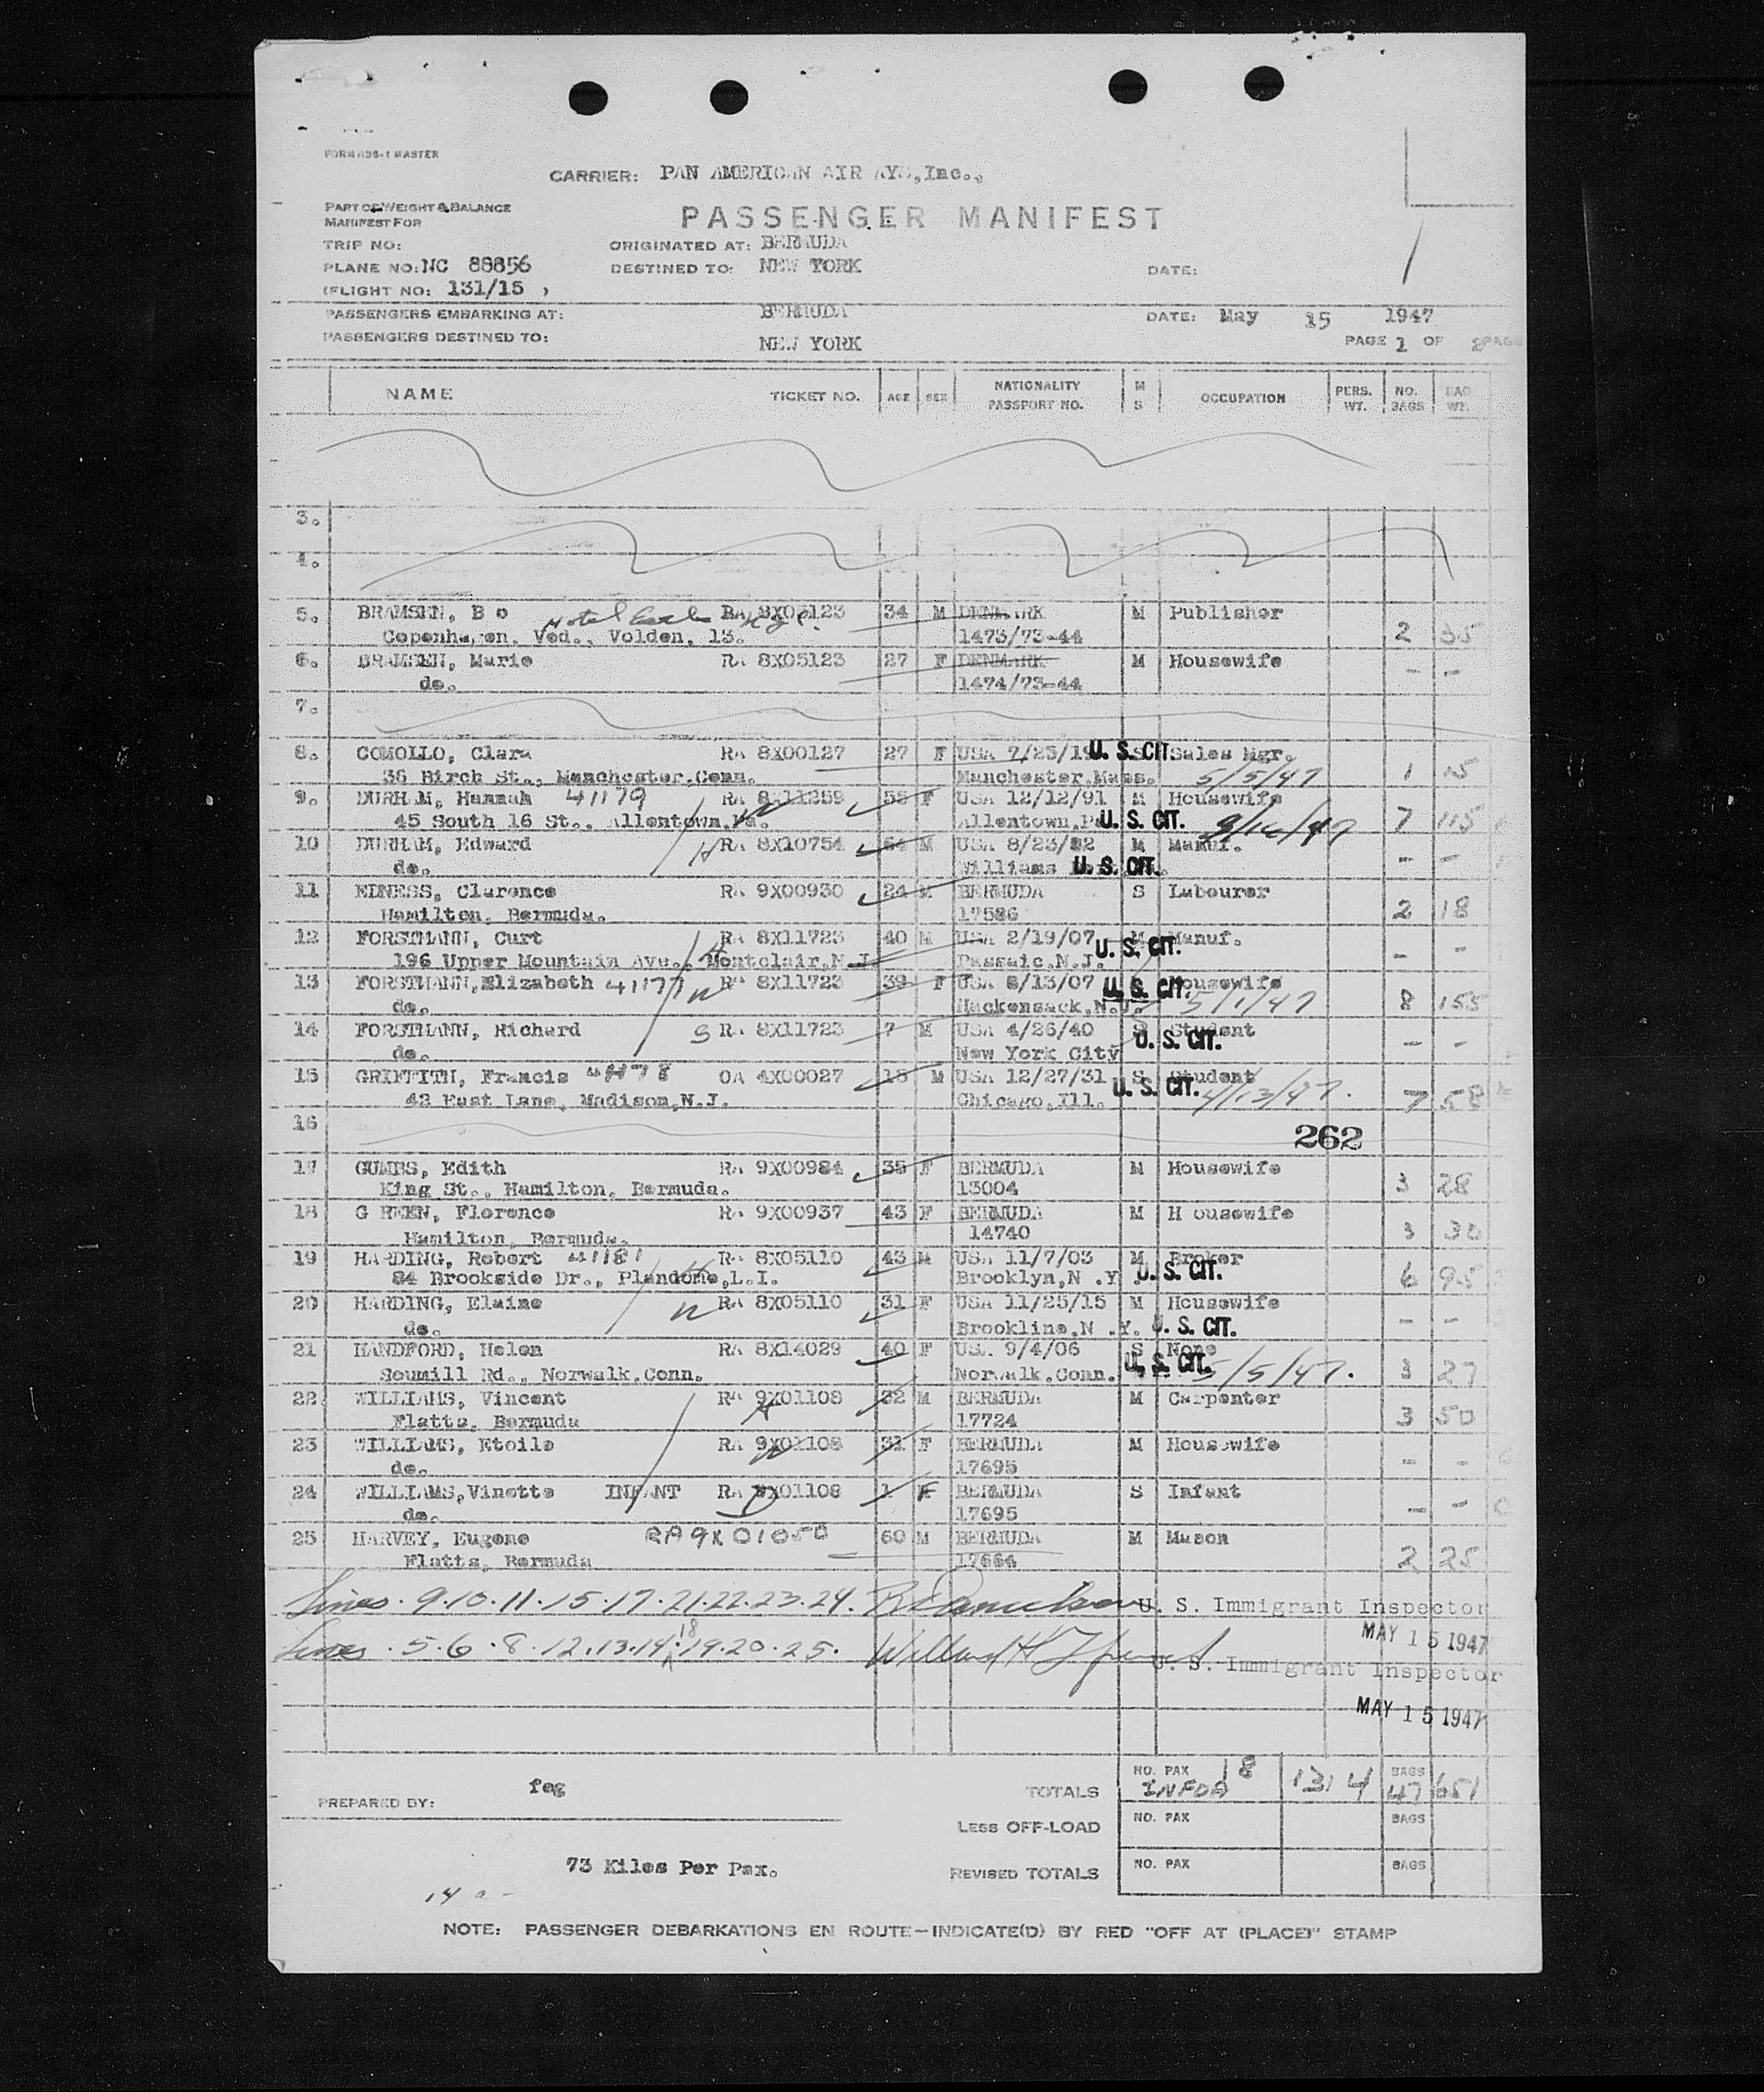 FORM 106-1 MASTER
CARRIER: PAN AMERICAN AIR AYS,Inc.,
PART OF WEIGHT & BALANCE
MANIFEST FOR
PASSENGER MANIFEST
TRIP NO: ORIGINATED AT: BERMUDA
PLANE NO: NC 88856 DESTINED TO: NEW YORK DATE:
(FLIGHT NO: 131/15 )
PASSENGERS EMBARKING AT: BERMUDA DATE: May 15 1947
PASSENGERS DESTINED TO: NEW YORK PAGE 1 OF 2 PAGE
NAME TICKET NO. AGE SEX NATIONALITY PASSPORT NO. M S OCCUPATION PERS. WT. NO. BAGS BAG WT.
3.
4.
5. BRAMSEN, B o Hotel RA 8X05123 34 M DENMARK M Publisher
Copenhagen, Ved., Volden, 13. 1473/73-44 2 35
6. BRAMSEN, Marie RA 8X05123 27 F DENMARK M Housewife
do. 1474/73-44 - -
7.
8. COMOLLO, Clara RA 8X00127 27 F USA 7/25/19 U. S. CIT Sales Mgr.
36 Birch St., Manchester,Conn. Manchester,Mass. 5/5/47 1 15
9. DURHAM, Hannah 41179 RA 8X11259 55 F USA 12/12/91 M Housewife
45 South 16 St., Allentown,Pa. Allentown,P U. S. CIT. 7 115
10 DURHAM, Edward H RA 8X10754 64 M USA 8/23/82 M Manuf.
do. Williams U. S. CIT. - -
11 EDNESS, Clarence RA 9X00930 24 M BERMUDA S Labourer
Hamilton, Bermuda. 17586 2 18
12 FORSTMANN, Curt RA 8X11723 40 M USA 2/19/07 M Manuf.
196 Upper Mountain Ave., Montclair,N.J. H Passaic,N.J. U. S. CIT. - -
13 FORSTMANN,Elizabeth 41177 W RA 8X11723 39 F USA 8/13/07 U. S. CIT. Housewife
do. Hackensack,N.J. 5/1/47 8 155
14 FORSTMANN, Richard S RA 8X11723 7 M USA 4/26/40 S Student
do. New York City U. S. CIT. - -
15 GRIFFITH, Francis 41178 OA 4X00027 15 M USA 12/27/31 S Student
42 East Lane, Madison,N.J. Chicago,Ill. U. S. CIT. 4/13/47. 7 58
16 262
17 GUMBS, Edith RA 9X00984 35 F BERMUDA M Housewife
King St., Hamilton, Bermuda. 13004 3 28
18 G REEN, Florence RA 9X00937 43 F BERMUDA M H ousewife
Hamilton, Bermuda. 14740 3 30
19 HARDING, Robert 41181 RA 8X05110 43 M USA 11/7/03 M Broker
84 Brookside Dr., Plandome,L.I. H Brooklyn,N .Y U. S. CIT. 6 95
20 HARDING, Elaine W RA 8X05110 31 F USA 11/25/15 M Housewife
do. Brookline,N .Y. U. S. CIT. - -
21 HANDFORD, Helen RA 8X14029 40 F USA 9/4/06 S None
Soumill Rd., Norwalk,Conn. Norwalk,Conn. U. S. CIT. 5/5/47. 3 27
22 WILLIAMS, Vincent RA 9X01108 32 M BERMUDA M Carpenter
Flatts, Bermuda H 17724 3 50
23 WILLIAMS, Etoile RA 9X01108 31 F BERMUDA M Housewife
do. W 17695 - -
24 WILLIAMS,Vinette INFANT RA 9X01108 1 F BERMUDA S Infant
do. D 17695 - -
25 HARVEY, Eugene RA9X01050 60 M BERMUDA M Mason
Flatts, Bermuda 17664 2 25
Lines. 9.10.11.15.17.21.22.23.24. U. S. Immigrant Inspector
MAY 15 1947
Lines. 5.6.8.12.13.14.18.19.20.25. Willard H U. S. Immigrant Inspector
MAY 15 1947
PREPARED BY: feg TOTALS NO. PAX 18 INFOA 1314 BAGS 47 651
LESS OFF-LOAD NO. PAX BAGS
73 Kilos Per Pax. REVISED TOTALS NO. PAX BAGS
NOTE: PASSENGER DEBARKATIONS EN ROUTE—INDICATE(D) BY RED "OFF AT (PLACE)" STAMP